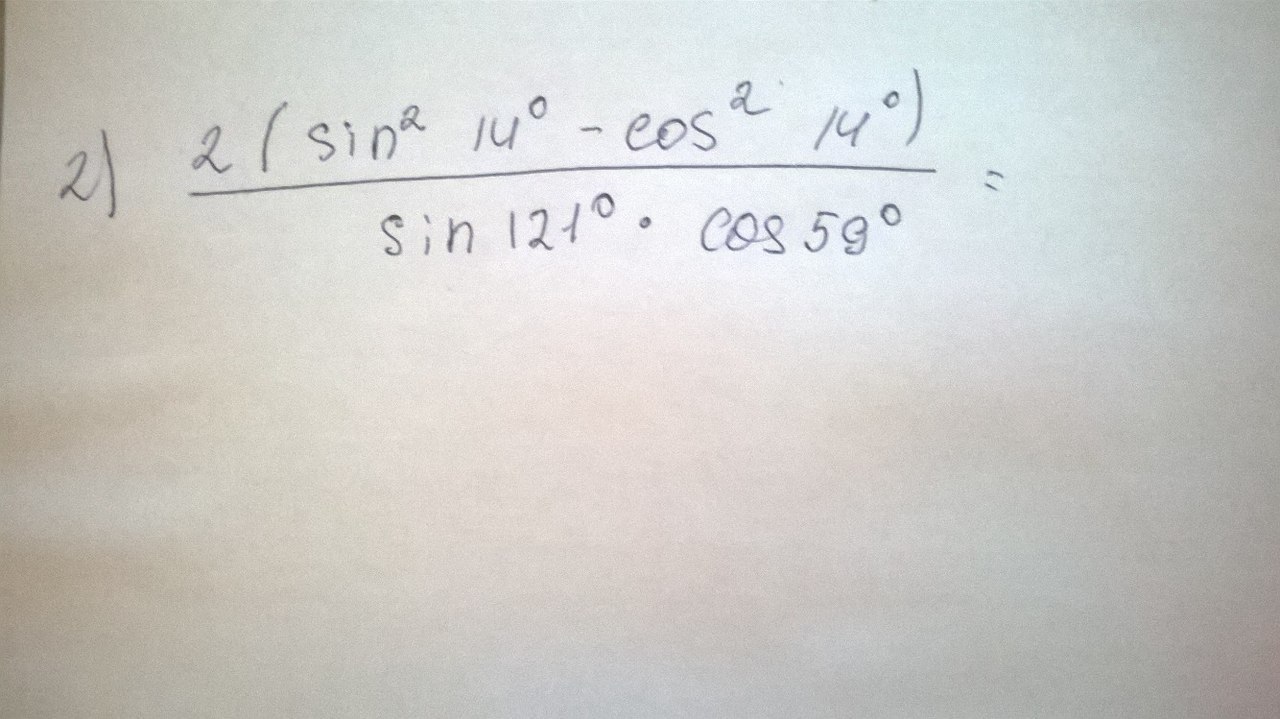 2) 2 (sin² 14° - cos² 14°) =
sin 121° · cos 59°